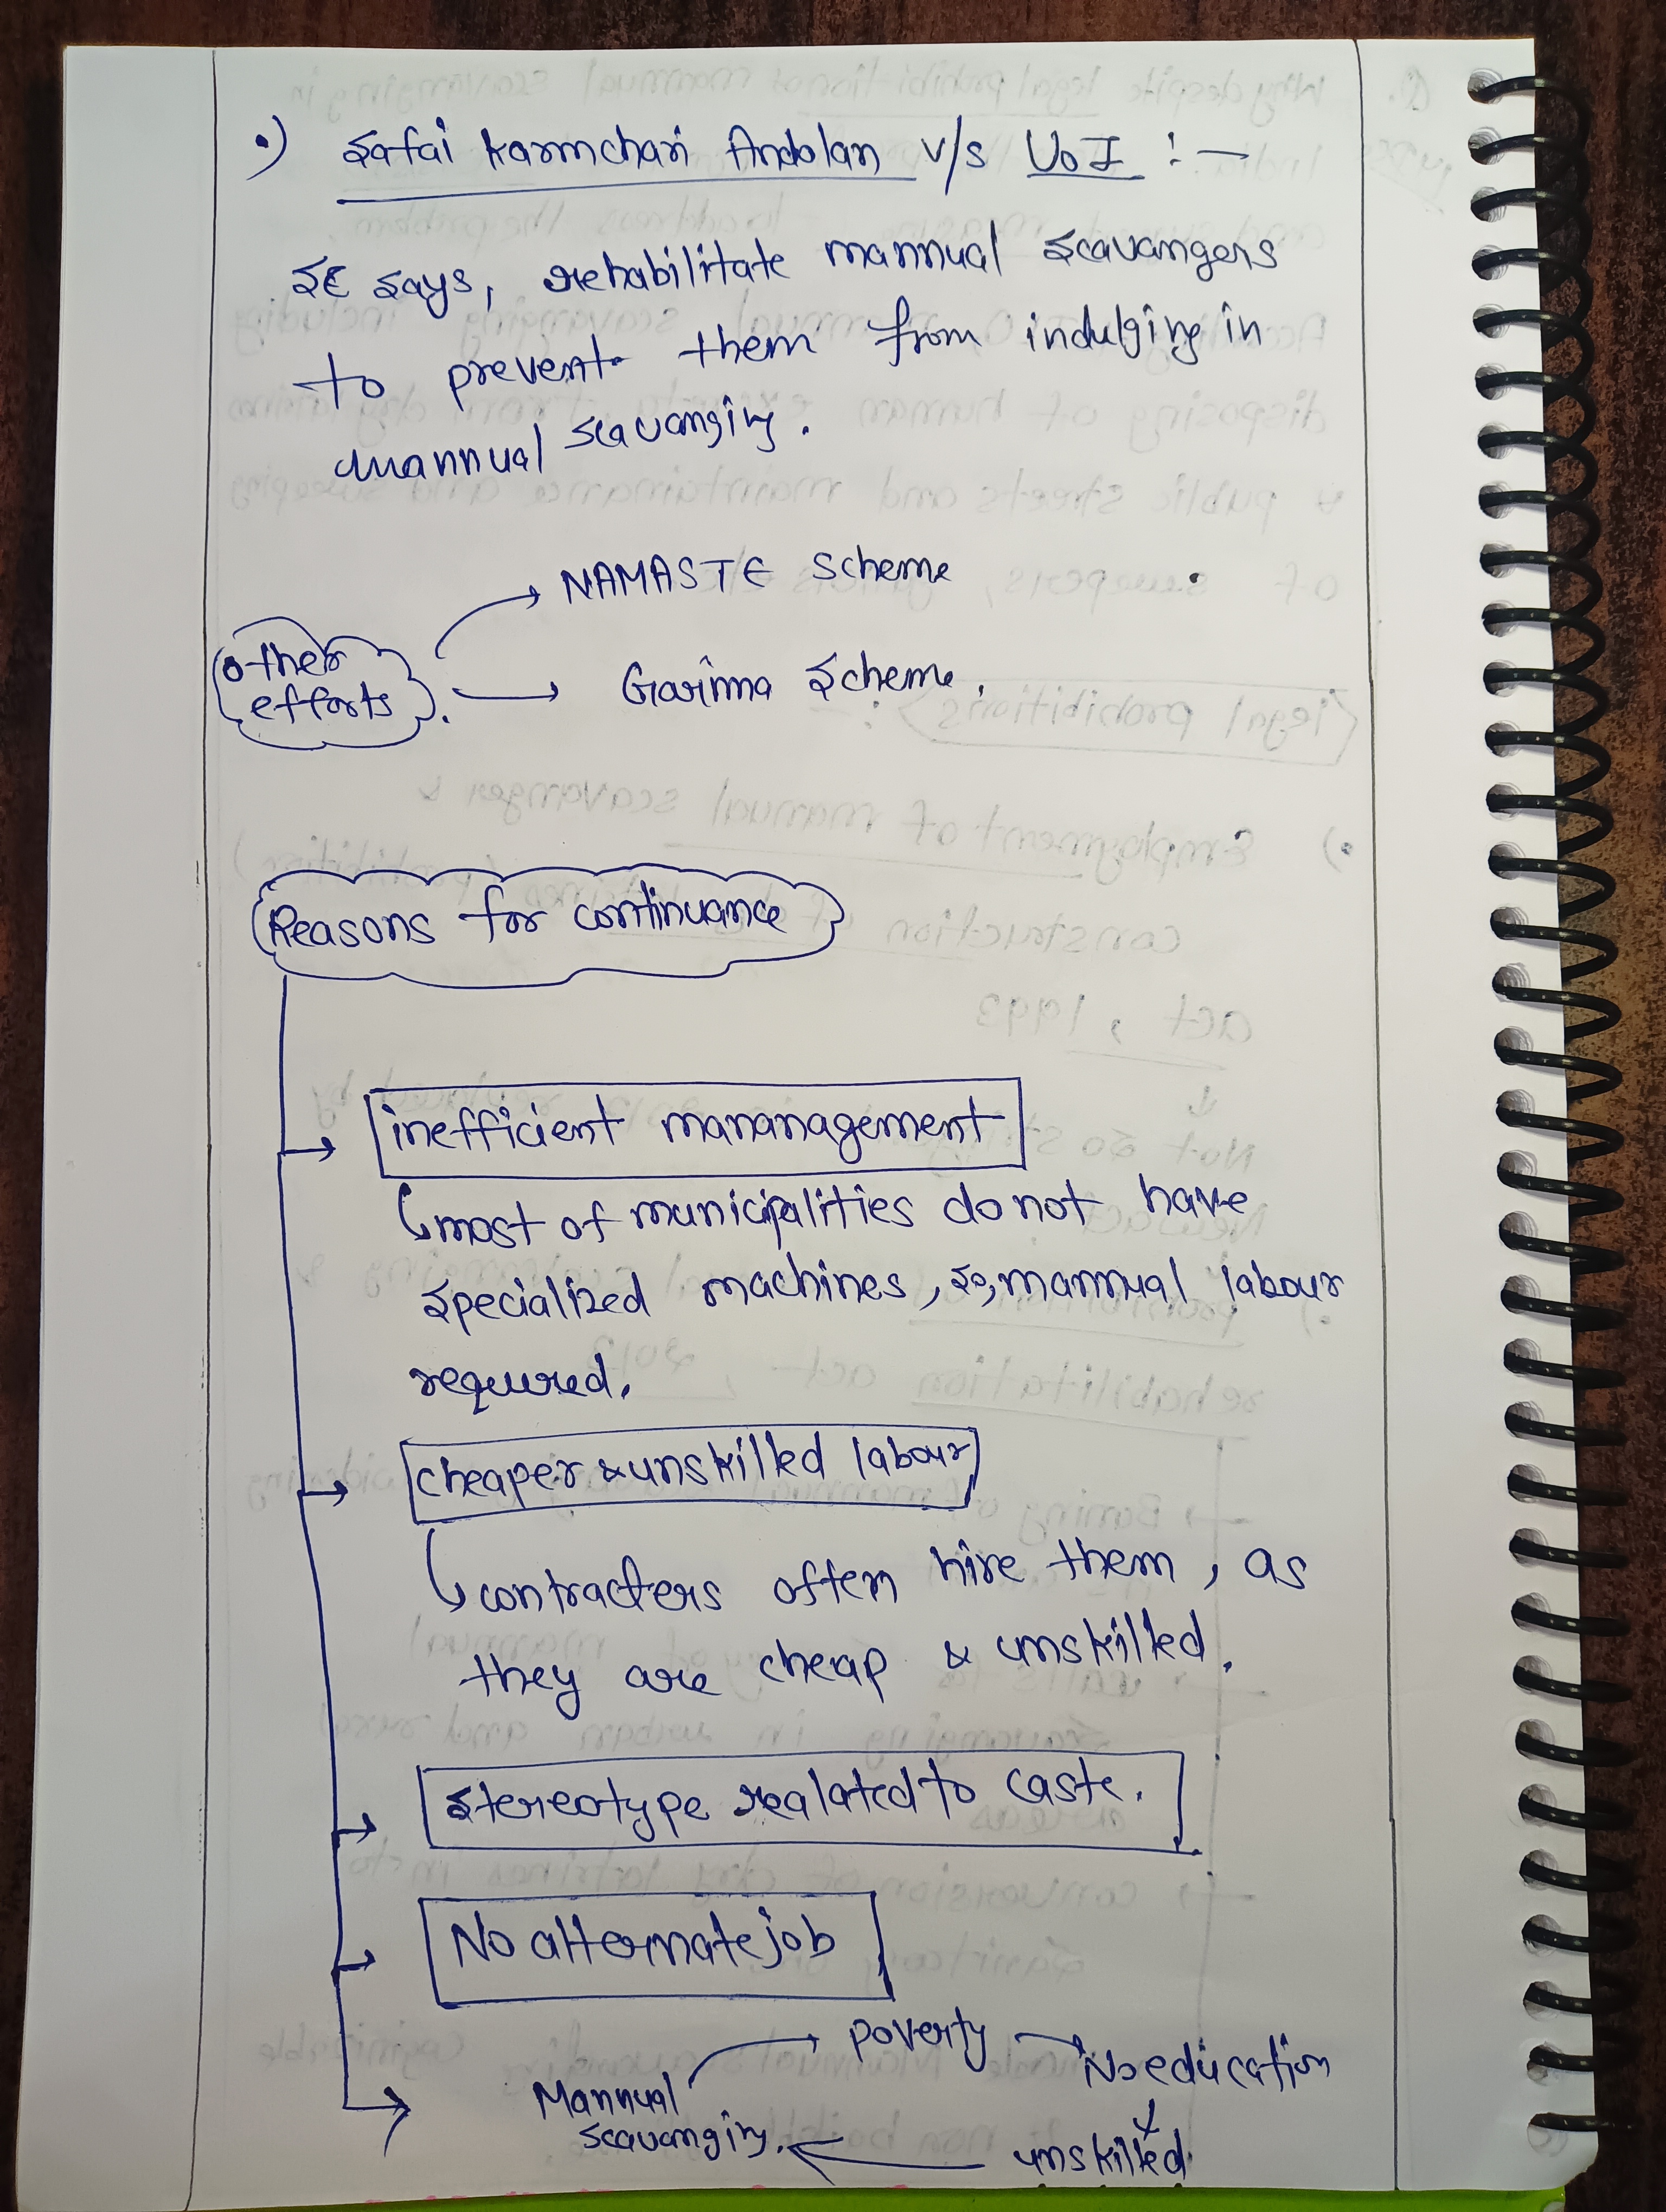 •) Safai Karmchari Andolan v/s UoI :-
SC says, rehabilitate mannual scavangers
to prevent them from indulging in
mannual scavanging.
NAMASTE Scheme
other
efforts
Garima Scheme.
Reasons for continuance
inefficient mananagement
most of municipalities do not have
specialized machines, so, mannual labour
required.
cheaper & unskilled labour
contracters often hire them, as
they are cheap & unskilled.
Stereotype realated to caste.
No alternate job
poverty
No education
Mannual
scavanging.
unskilled.